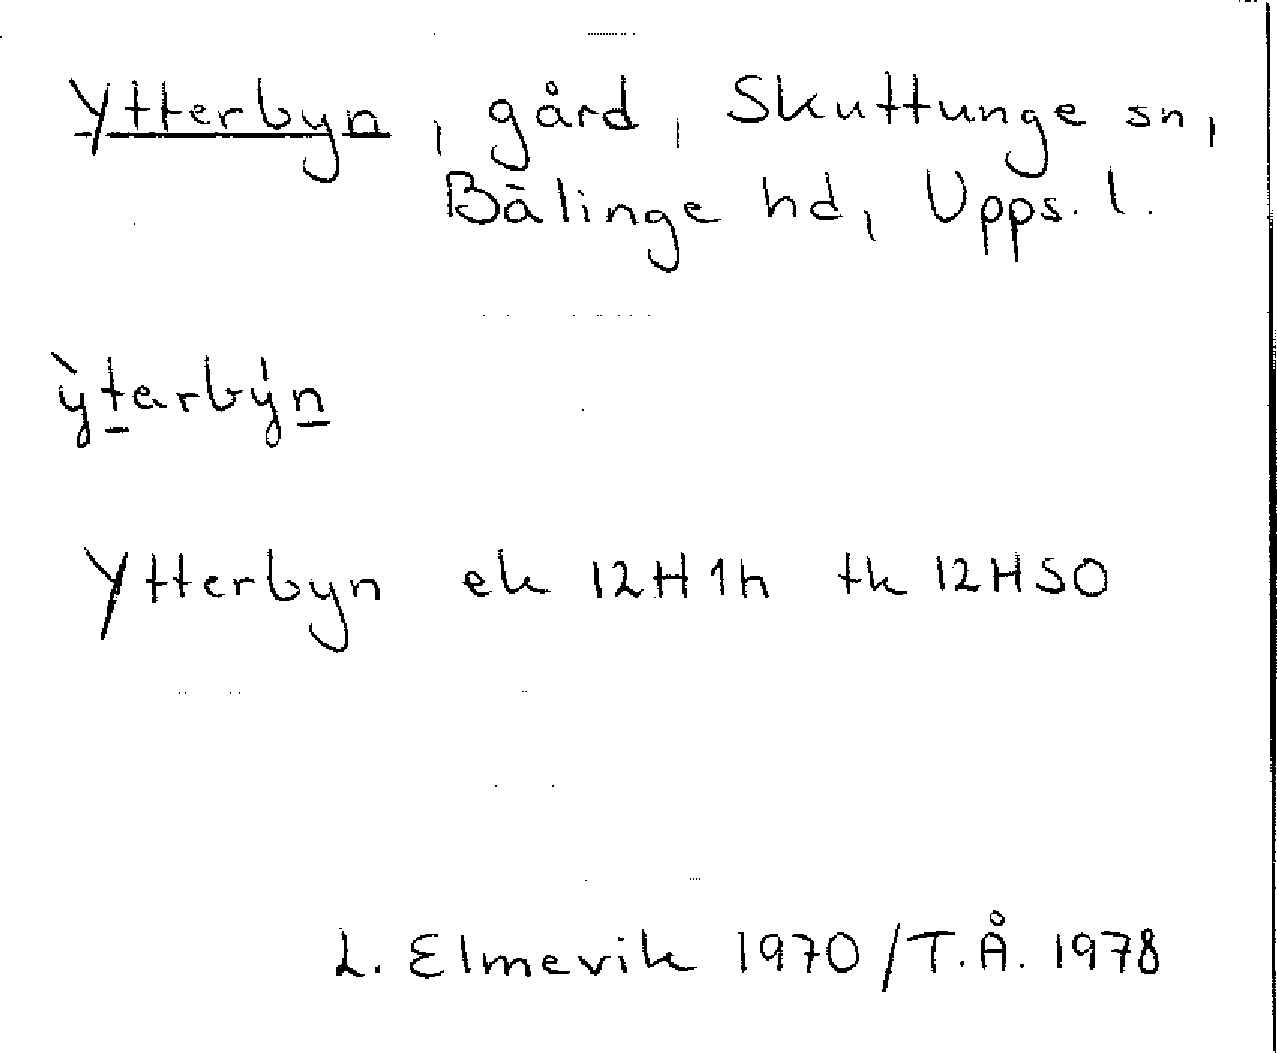 Ytterbyn, gård, Skuttunge sn,
Bälinge hd, Upps. l.
ỳtarbýn
Ytterbyn ek 12H1h tk 12HSO
L. Elmevik 1970/T.Å. 1978